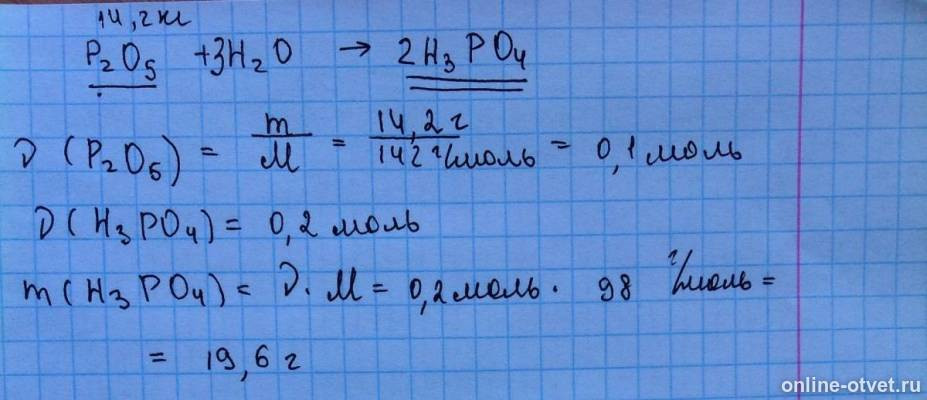 14,2 кг
P₂O₅ + 3H₂O → 2H₃PO₄
ν (P₂O₅) = m/M = 14,2 г/142 г/моль = 0,1 моль
ν (H₃PO₄) = 0,2 моль
m (H₃PO₄) = ν · M = 0,2 моль · 98 г/моль =
= 19,6 г
online-otvet.ru